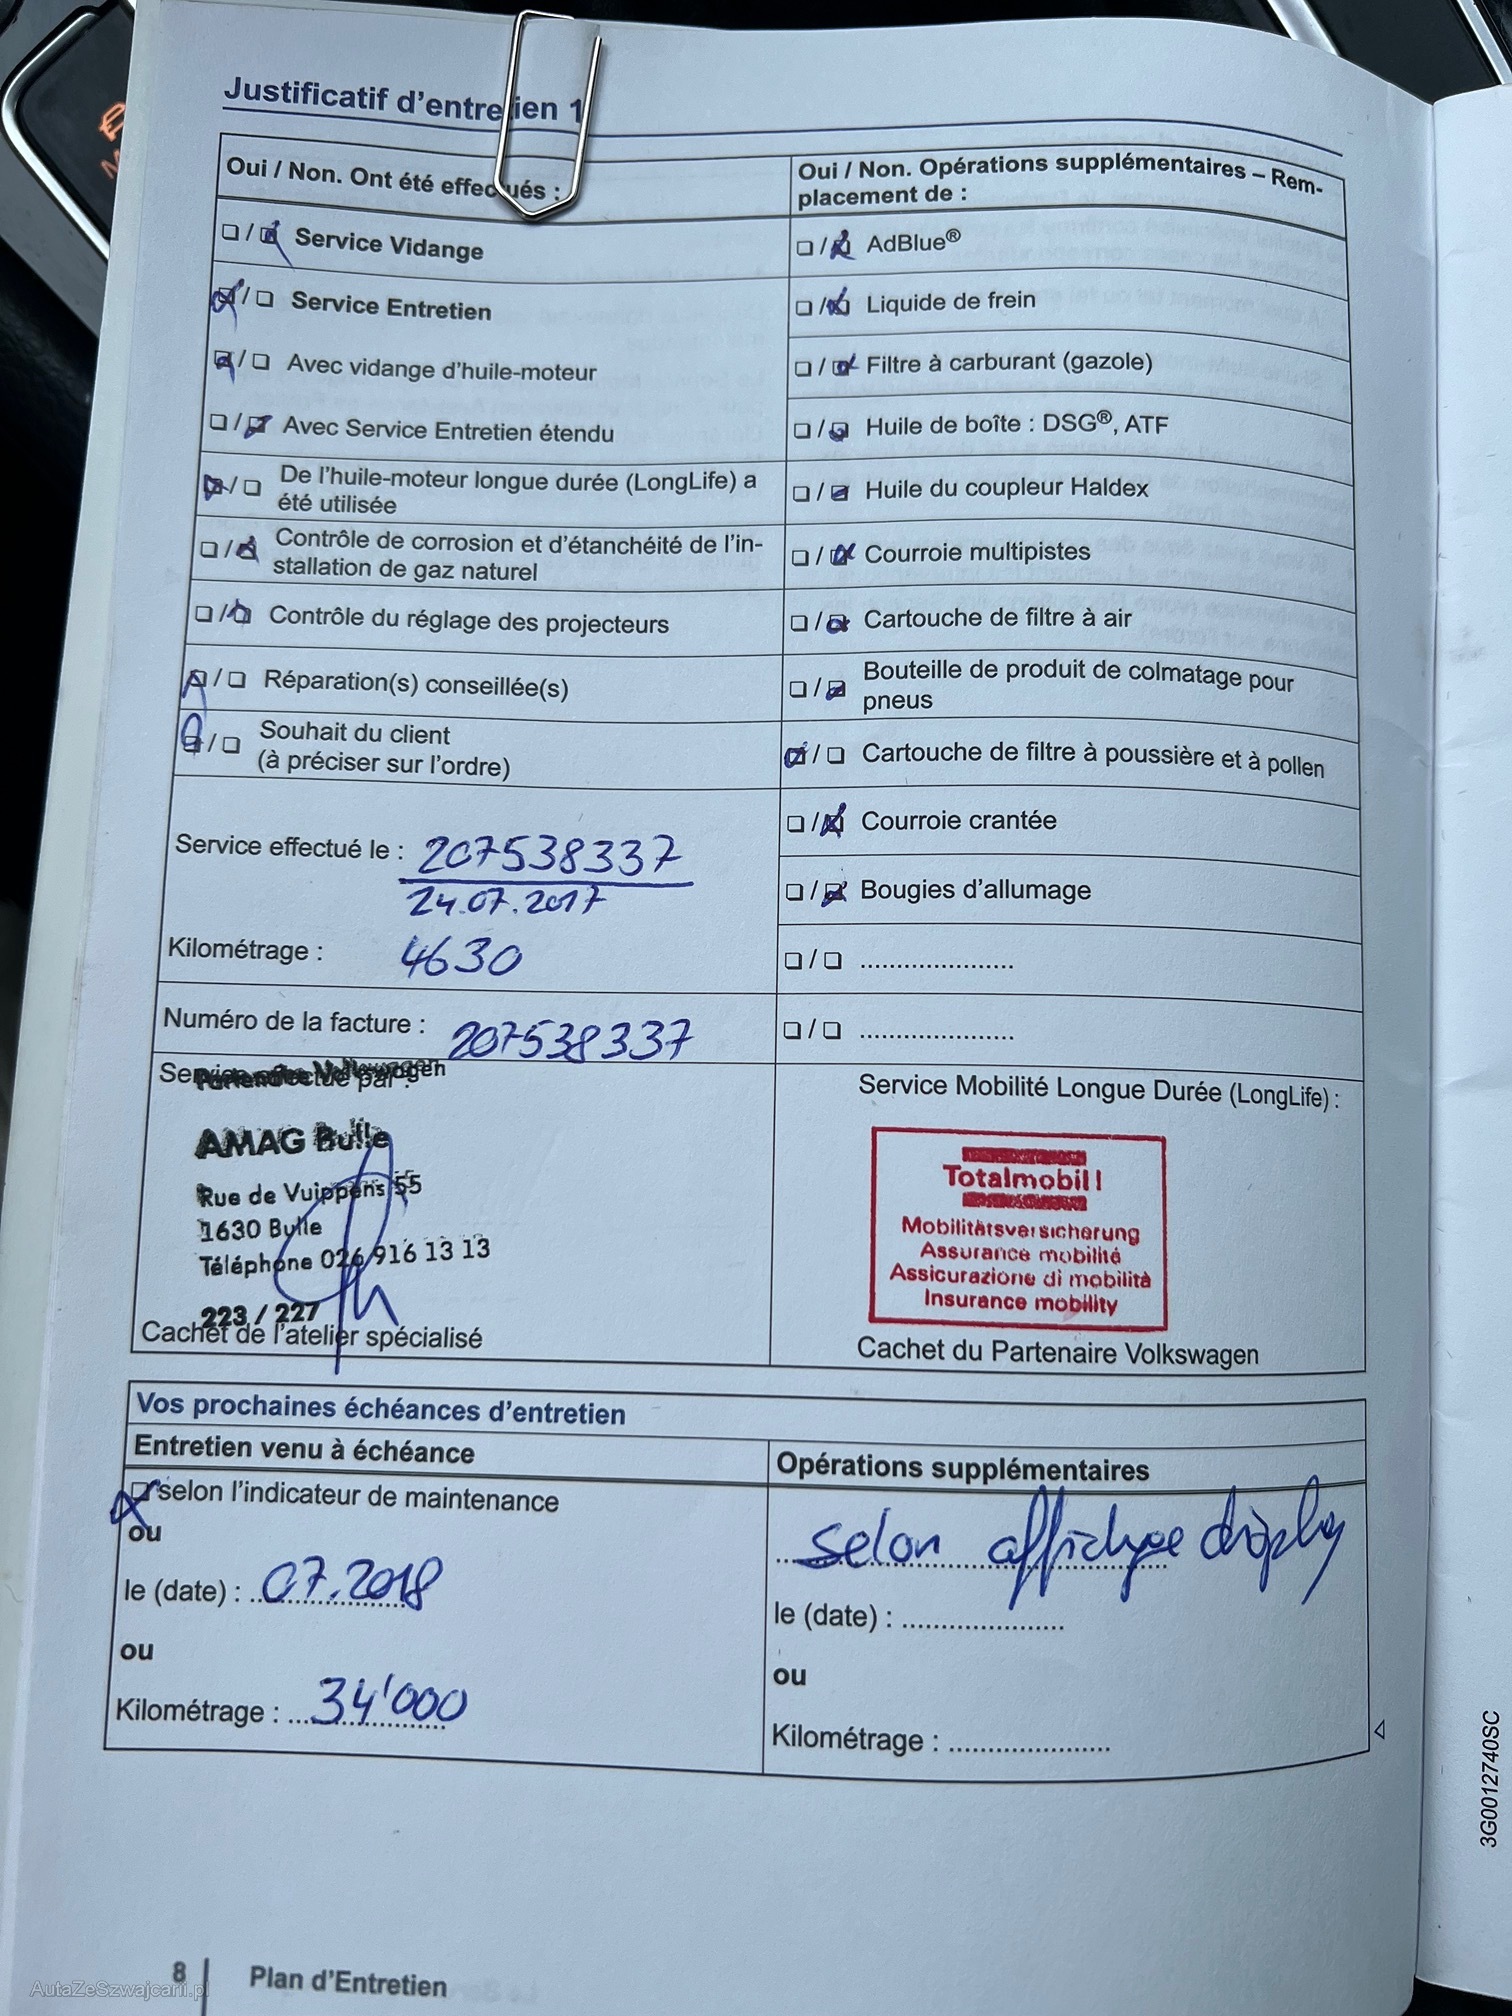 Justificatif d'entretien 1
Oui / Non. Ont été effectués :
❏ / ❏ Service Vidange
❏ / ❏ Service Entretien
❏ / ❏ Avec vidange d'huile-moteur
❏ / ❏ Avec Service Entretien étendu
❏ / ❏ De l'huile-moteur longue durée (LongLife) a
été utilisée
❏ / ❏ Contrôle de corrosion et d'étanchéité de l'in-
stallation de gaz naturel
❏ / ❏ Contrôle du réglage des projecteurs
❏ / ❏ Réparation(s) conseillée(s)
❏ / ❏ Souhait du client
(à préciser sur l'ordre)
Service effectué le : 207538337
24.07.2017
Kilométrage : 4630
Numéro de la facture : 207538337
AMAG Bulle
Rue de Vuippens 55
1630 Bulle
Téléphone 026 916 13 13
223 / 227
Cachet de l'atelier spécialisé
Oui / Non. Opérations supplémentaires – Rem-
placement de :
❏ / ❏ AdBlue®
❏ / ❏ Liquide de frein
❏ / ❏ Filtre à carburant (gazole)
❏ / ❏ Huile de boîte : DSG®, ATF
❏ / ❏ Huile du coupleur Haldex
❏ / ❏ Courroie multipistes
❏ / ❏ Cartouche de filtre à air
❏ / ❏ Bouteille de produit de colmatage pour
pneus
❏ / ❏ Cartouche de filtre à poussière et à pollen
❏ / ❏ Courroie crantée
❏ / ❏ Bougies d'allumage
❏ / ❏ .....................
❏ / ❏ .....................
Service Mobilité Longue Durée (LongLife) :
Totalmobil!
Mobilitätsversicherung
Assurance mobilité
Assicurazione di mobilità
Insurance mobility
Cachet du Partenaire Volkswagen
Vos prochaines échéances d'entretien
Entretien venu à échéance
❏ selon l'indicateur de maintenance
ou
le (date) : 07.2018
ou
Kilométrage : 34'000
Opérations supplémentaires
selon affichage display
le (date) : ......................
ou
Kilométrage : ......................
3G0012740SC
8 Plan d'Entretien
AutaZeSzwajcarii.pl